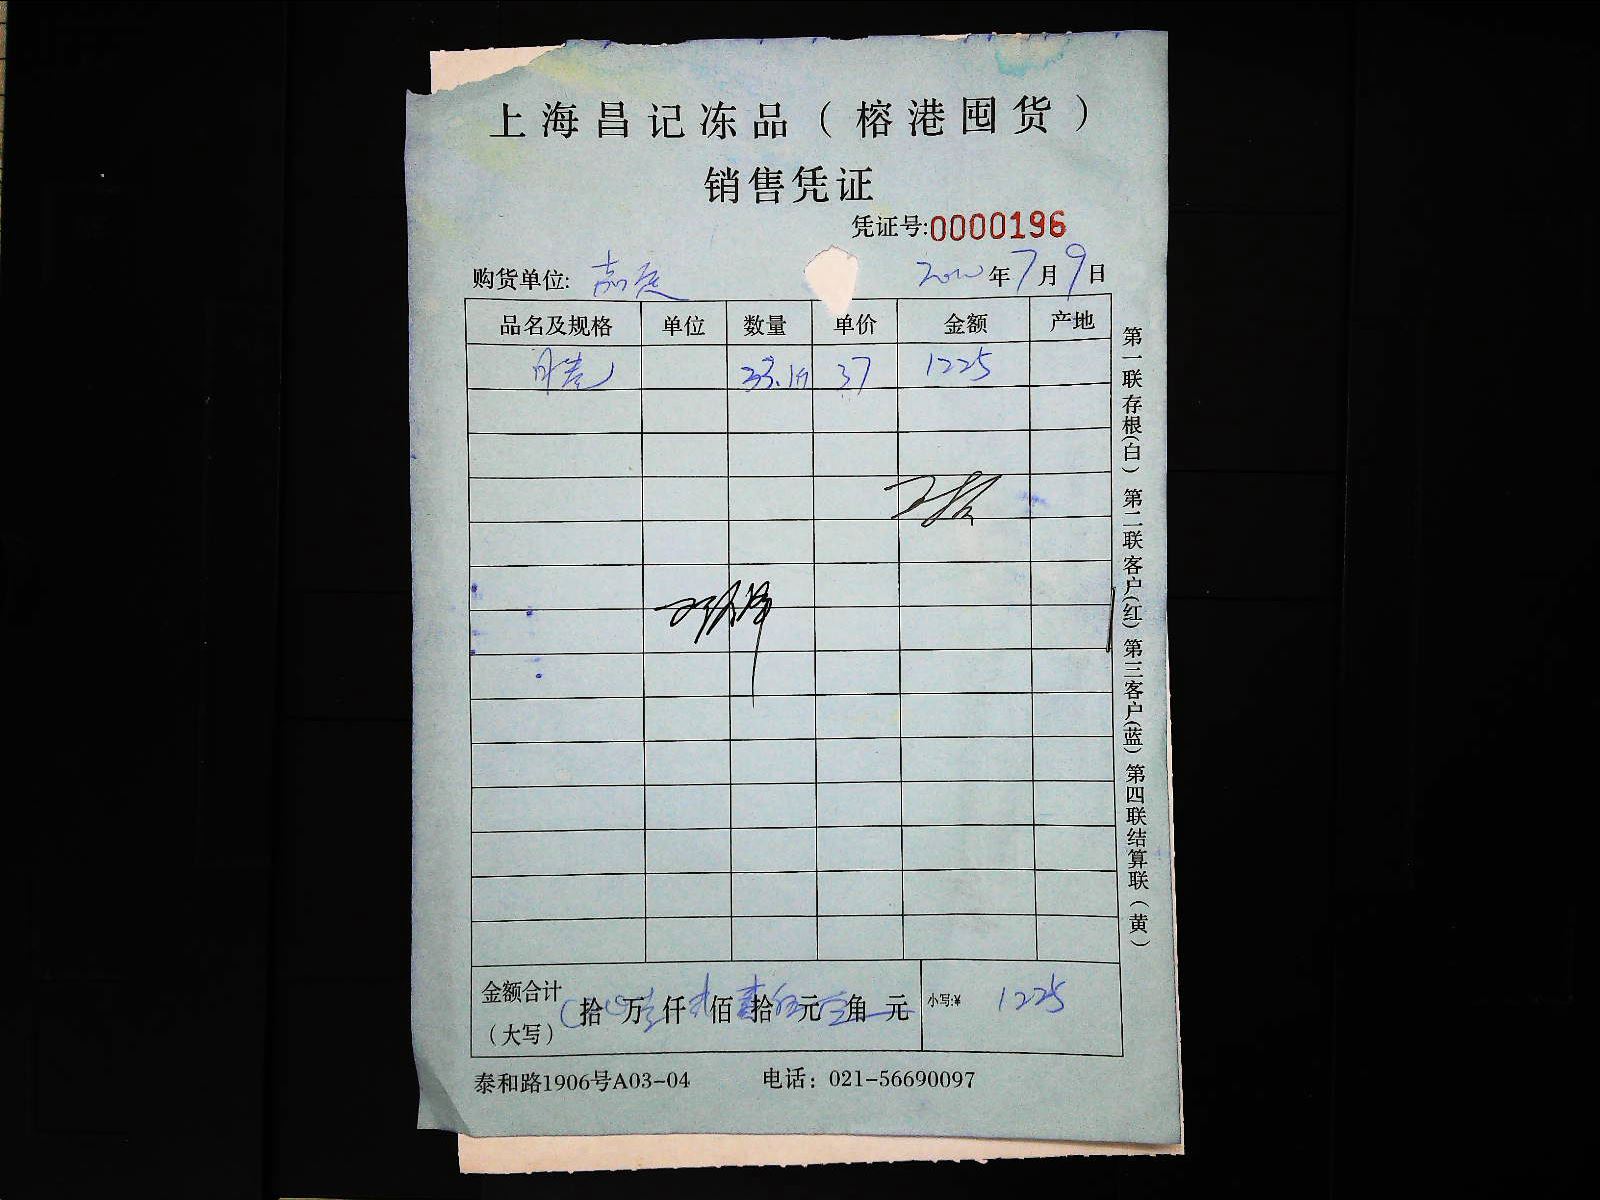 上海昌记冻品（榕港囤货）
销售凭证
凭证号:0000196
购货单位: 年7月9日
品名及规格 单位 数量 单价 金额 产地
37 1225
金额合计（大写） 拾 万 仟 佰 拾 元 角 元 小写:¥ 1225
泰和路1906号A03-04 电话：021-56690097
第一联存根(白) 第二联客户(红) 第三客户(蓝) 第四联结算联（黄）